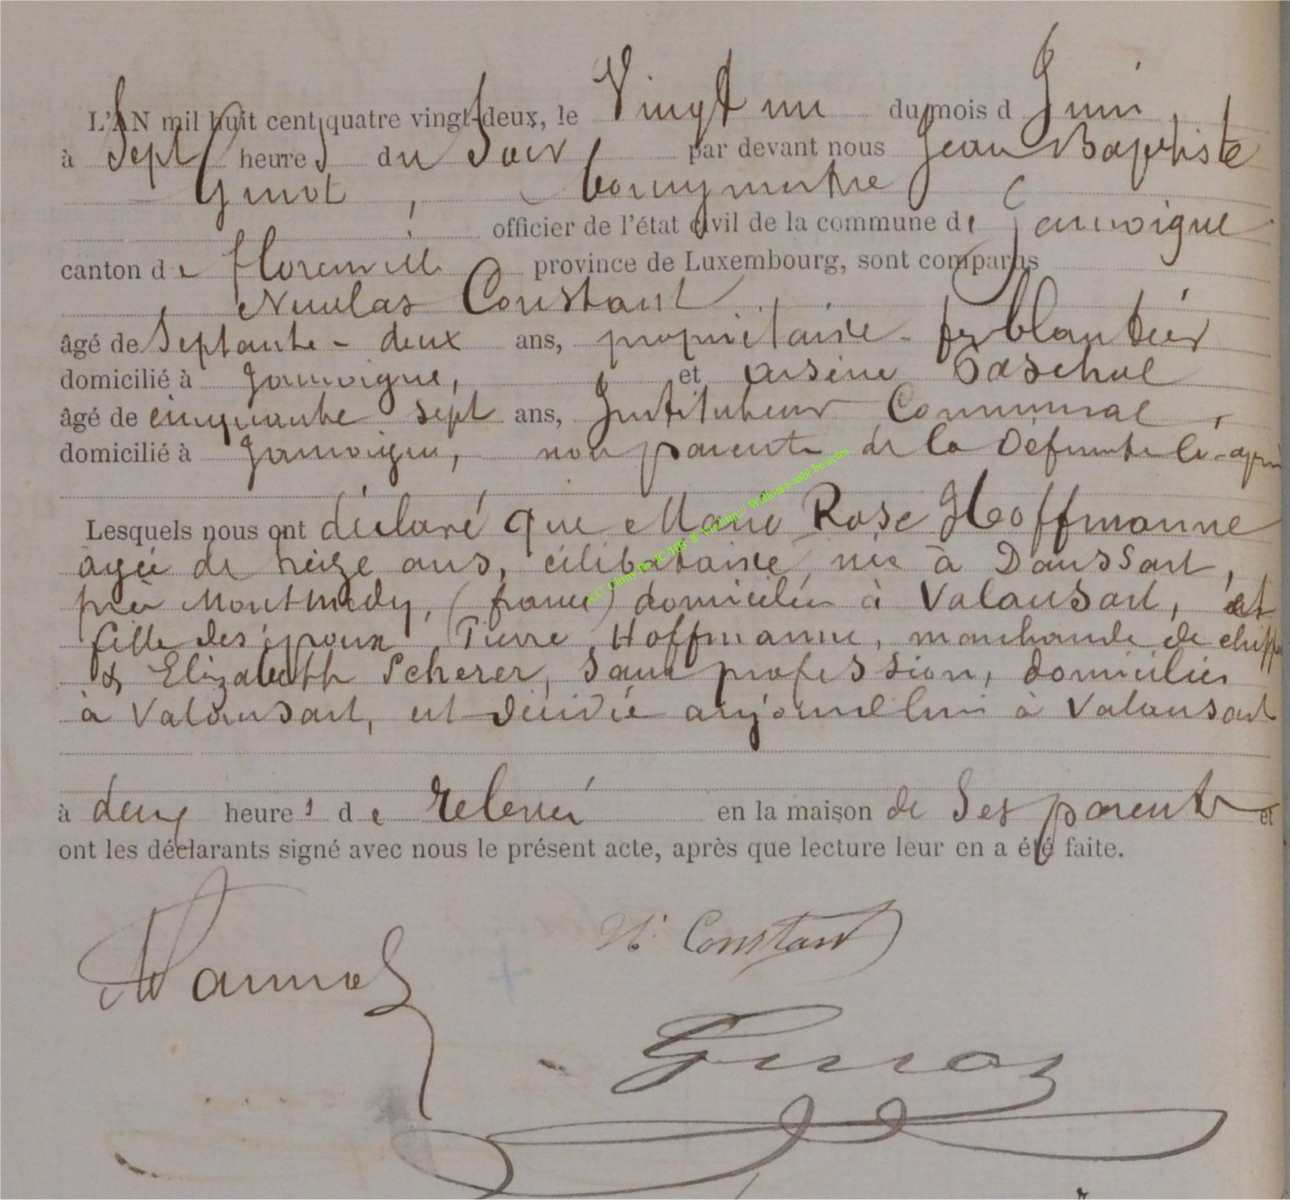 L'AN mil huit cent quatre vingt-deux, le Vingt un du mois d Juin
à Sept heures du Soir par devant nous Jean Baptiste
Ginot, Bourgmestre
officier de l'état civil de la commune de Jamoigne
canton de florenville province de Luxembourg, sont comparus
Nicolas Constant
âgé de Septante-deux ans, propriétaire-ferblantier
domicilié à Jamoigne, et arsène
âgé de cinquante sept ans, Instituteur Communal,
domicilié à Jamoigne, non parents de la Défunte ci-après
Lesquels nous ont déclaré que Marie Rose Hoffmanne
agée de seize ans, célibataire, née à
près Montmedy, (france) domiciliée à Valansart, et
fille des époux Pierre Hoffmanne, marchands de
& Elizabeth Scherer, sans profession, domiciliés
à Valansart, est décédée aujourd'hui à Valansart
à deux heures de relevée en la maison de Ses parents et
ont les déclarants signé avec nous le présent acte, après que lecture leur en a été faite.
N. Constant
Ginot